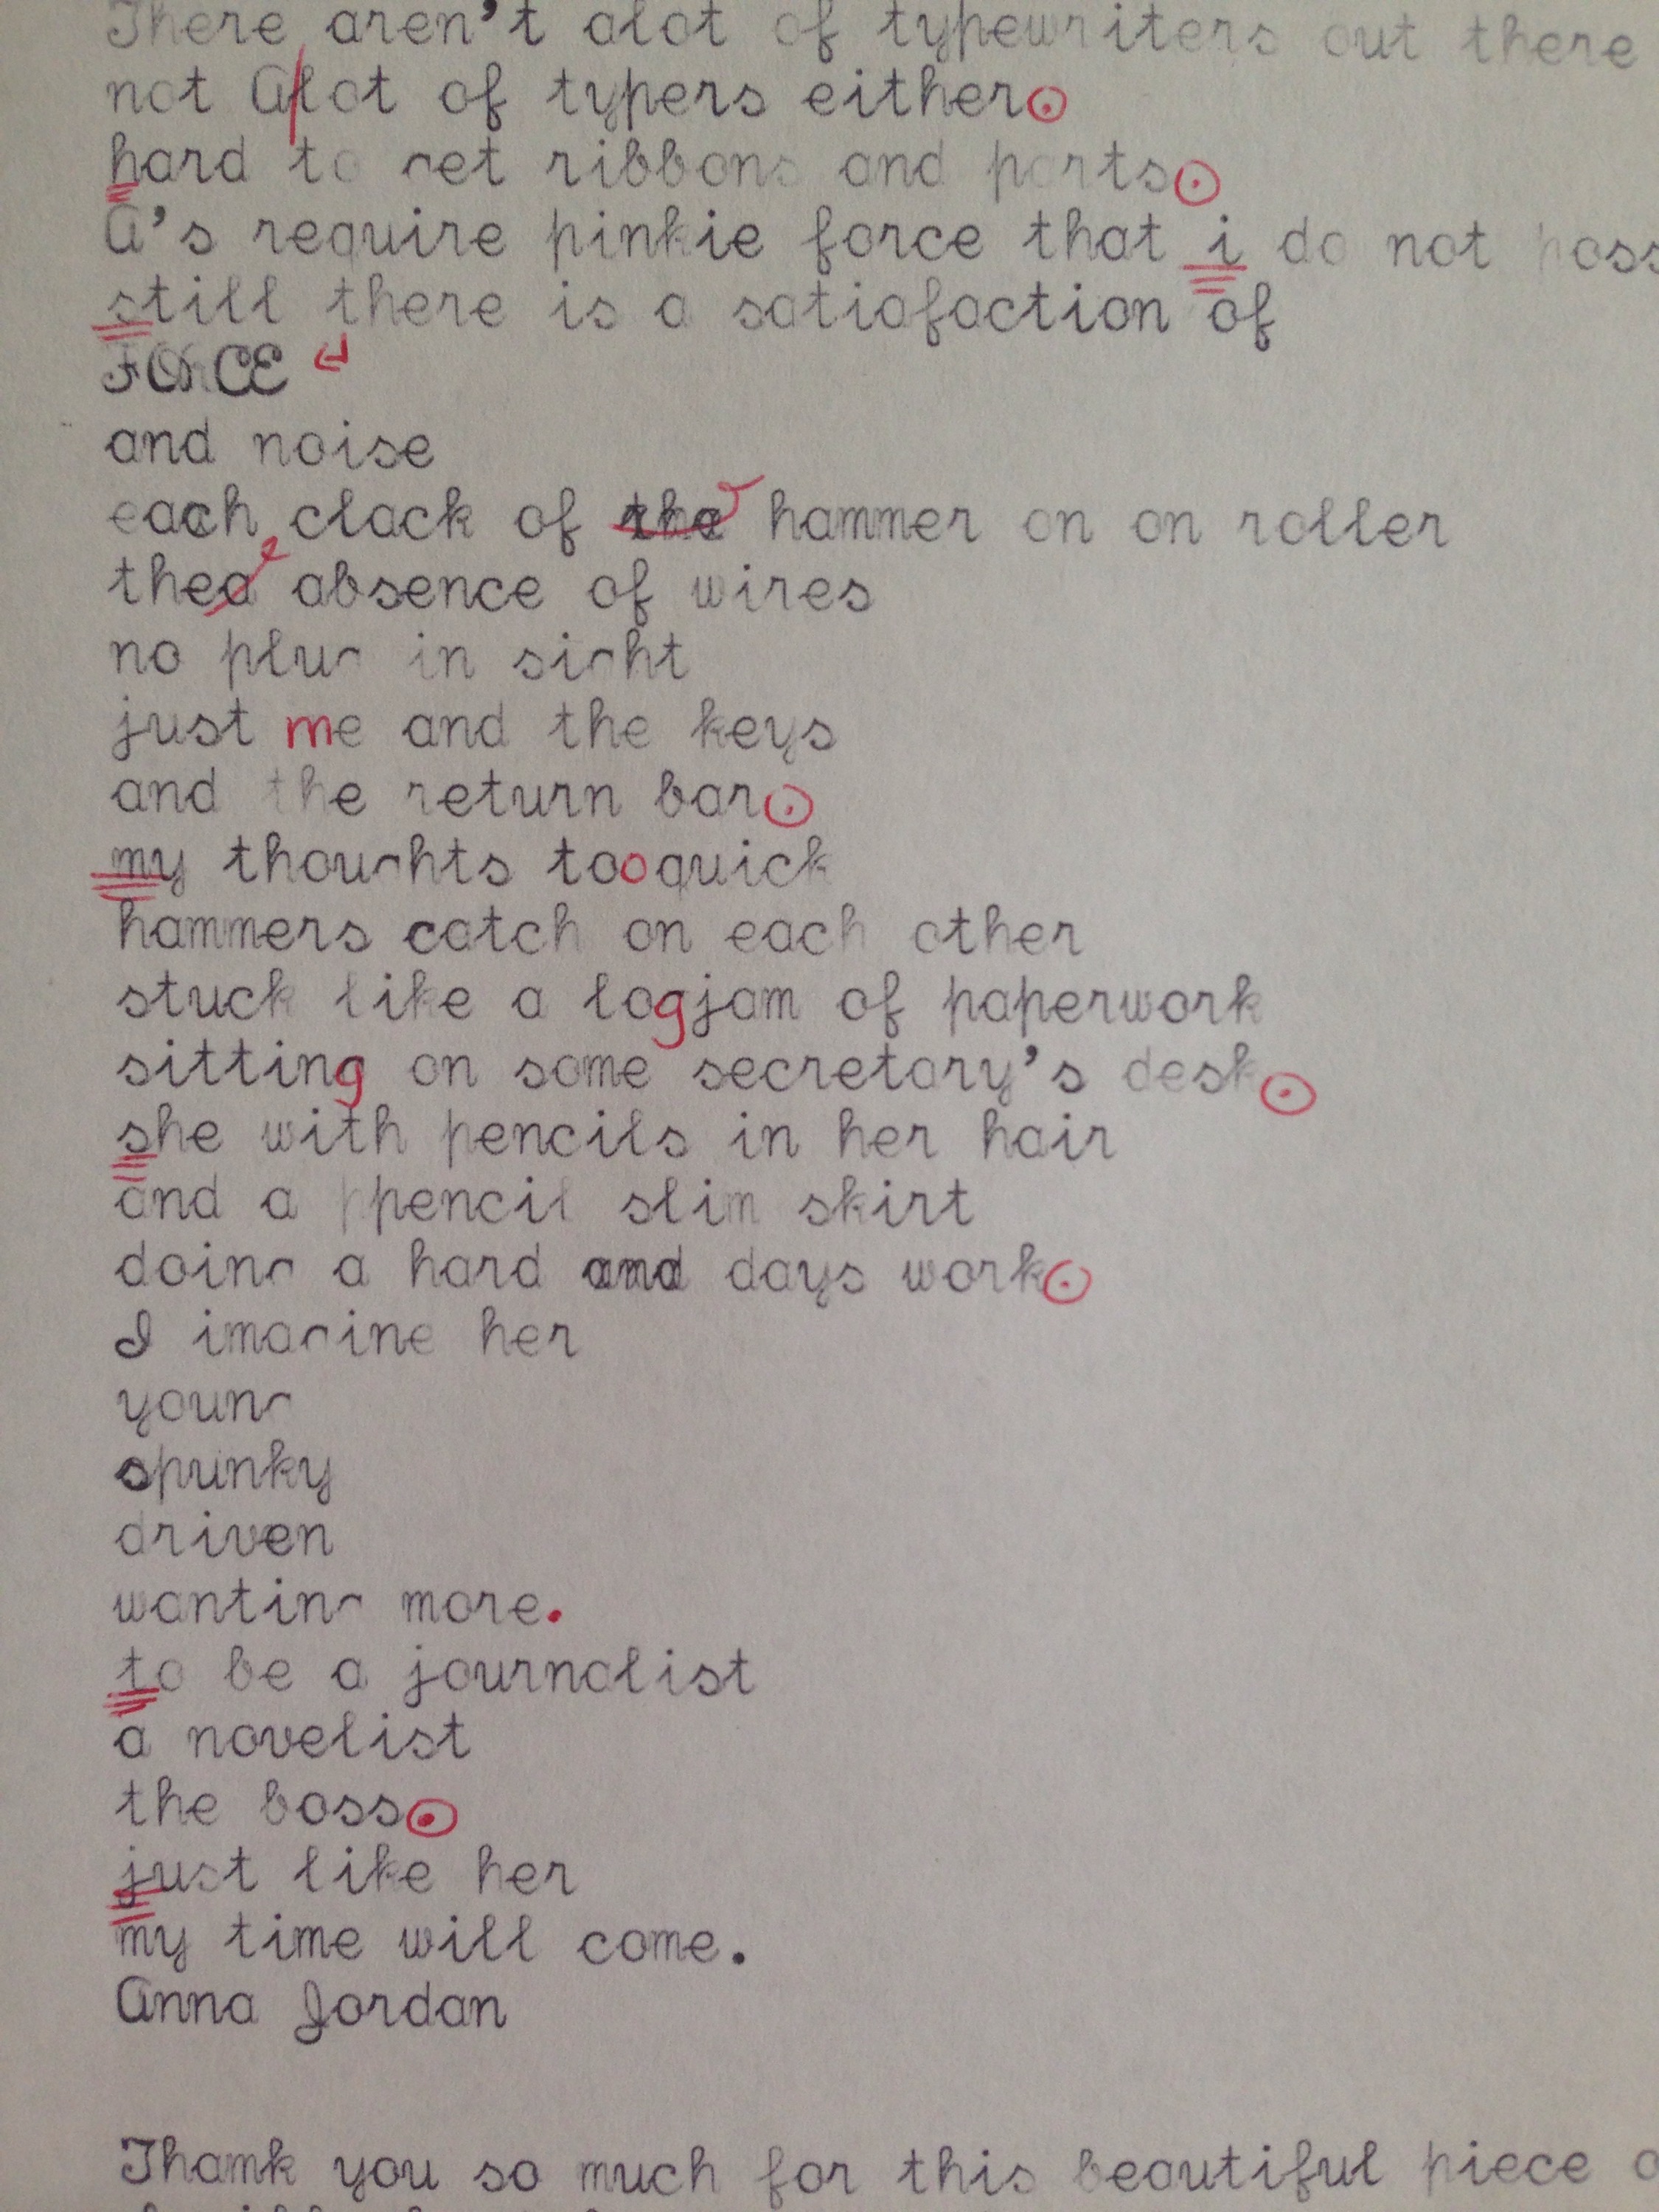 There aren't alot of typewriters out there
not Alot of typers either.
hard to get ribbons and parts.
A's require pinkie force that i do not poss
still there is a satisfaction of
FORCE
and noise
each clack of the hammer on on roller
thea absence of wires
no plug in sight
just me and the keys
and the return bar.
my thoughts tooquick
hammers catch on each other
stuck like a logjam of paperwork
sitting on some secretary's desk.
she with pencils in her hair
and a ppencil slim skirt
doing a hard and days work.
I imagine her
young
spunky
driven
wanting more.
to be a journalist
a novelist
the boss.
just like her
my time will come.
Anna Jordan
Thank you so much for this beautiful piece